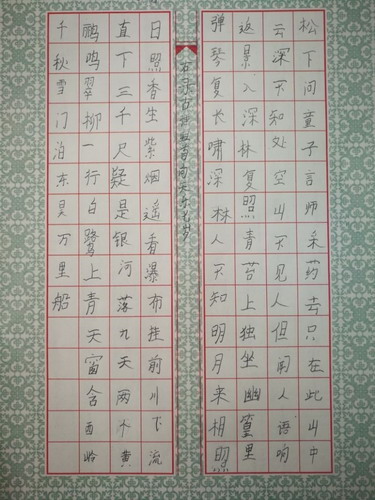 松下问童子言师采药去只在此山中
云深不知处空山不见人但闻人语响
返景入深林复照青苔上独坐幽篁里
弹琴复长啸深林人不知明月来相照
古诗首天九岁
日照香生紫烟遥香瀑布挂前川飞流
直下三千尺疑是银河落九天两个黄
鹂鸣翠柳一行白鹭上青天窗含西岭
千秋雪门泊东吴万里船